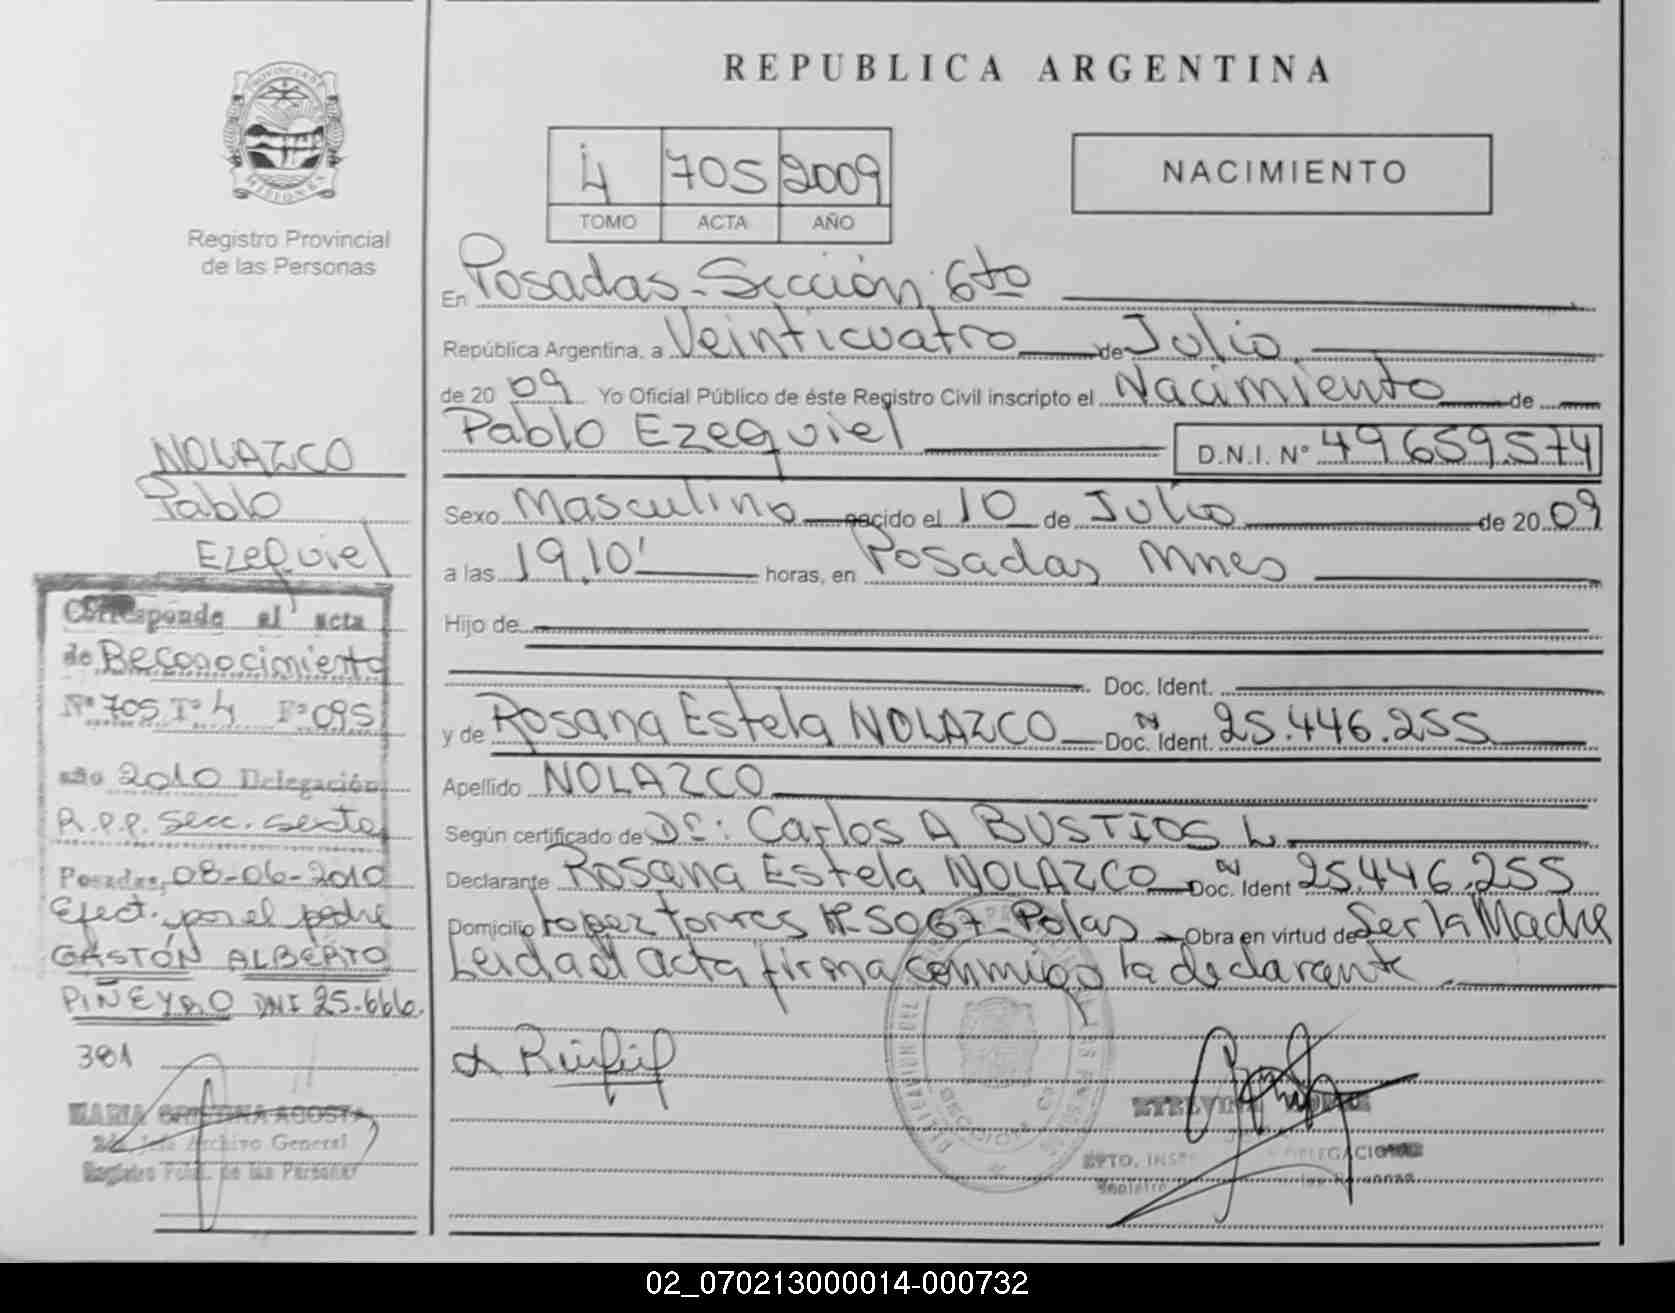 REPUBLICA ARGENTINA
PROVINCIA DE MISIONES
Registro Provincial
de las Personas
4 705 2009
TOMO ACTA AÑO
NACIMIENTO
En Posadas - Sección 6to
República Argentina, a Veinticuatro de Julio
de 2009 Yo Oficial Público de éste Registro Civil inscripto el Nacimiento de
Pablo Ezequiel D.N.I. N° 49.659.574
Sexo Masculino nacido el 10 de Julio de 2009
a las 19,10' horas, en Posadas Mnes
Hijo de
Doc. Ident.
y de Rosana Estela NOLAZCO N Doc. Ident. 25.446.255
Apellido NOLAZCO
Según certificado de Dr: Carlos A BUSTIOS L
Declarante Rosana Estela NOLAZCO N Doc. Ident 25.446.255
Domicilio Lopez Torres Nº 5067 - Pdas Obra en virtud de Ser la Madre
Leida el acta firma conmigo la declarante
NOLAZCO
Pablo
Ezequiel
Corresponde al acta
de Reconocimiento
Nº 705 Tº 4 Fº 095
año 2010 Delegación
R.P.P. Secc. sexta
Posadas, 08-06-2010
Efect. por el padre
GASTÓN ALBERTO
PIÑEYRO DNI 25.666.
381
MARIA CRISTINA ACOSTA
Archivo General
de las Personas
02_070213000014-000732